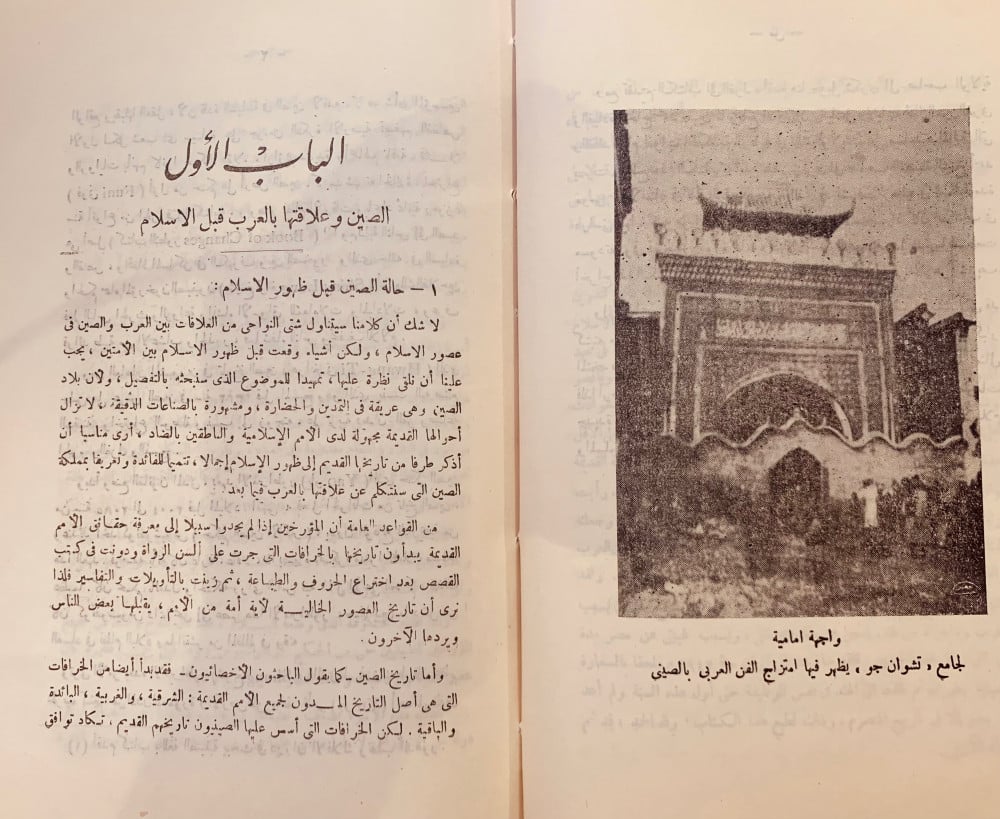 واجهة امامية
لجامع « تشوان جو » يظهر فيها امتزاج الفن العربى بالصينى
الباب الأول
الصين وعلاقتها بالعرب قبل الاسلام
١ — حالة الصين قبل ظهور الاسلام :
لا شك أن كلامنا سيتناول شتى النواحى من العلاقات بين العرب والصين فى
عصور الاسلام ، ولكن أشياء وقعت قبل ظهور الاسلام بين الأمتين ، يجب
علينا أن نلقى نظرة عليها ، تمهيدا للموضوع الذى سنبحثه بالتفصيل ، ولأن بلاد
الصين وهى عريقة فى التمدين والحضارة ، ومشهورة بالصناعات الدقيقة ، لا تزال
أحوالها القديمة مجهولة لدى الأمم الاسلامية والناطقين بالضاد ، أرى مناسبا أن
أذكر طرفا من تاريخها القديم إلى ظهور الإسلام إجمالا ، تتميما للفائدة وتعريفا بمملكة
الصين التى سنتكلم عن علاقتها بالعرب فيما بعد .
من القواعد العامة أن المؤرخين إذا لم يجدوا سبيلا إلى معرفة حقائق الأمم
القديمة يبدأون تاريخها بالخرافات التى جرت على ألسن الرواة ودونت فى كتب
القصص بعد اختراع الحروف والطباعة ، ثم زينت بالتأويلات والتفاسير فلذا
نرى أن تاريخ العصور الخالية لأية أمة من الأمم ، يقبلها بعض الناس
ويردها الآخرون .
وأما تاريخ الصين ـ كما يقول الباحثون الأخصائيون ـ فقد بدأ أيضا من الخرافات
التى هى أصل التاريخ المدون لجميع الأمم القديمة : الشرقية ، والغربية ، البائدة
والباقية . لكن الخرافات التى أسس عليها الصينيون تاريخهم القديم ، تكاد توافق